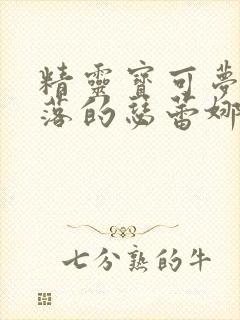 精靈寶可夢
落的瑟蕾娜
七分熟的牛